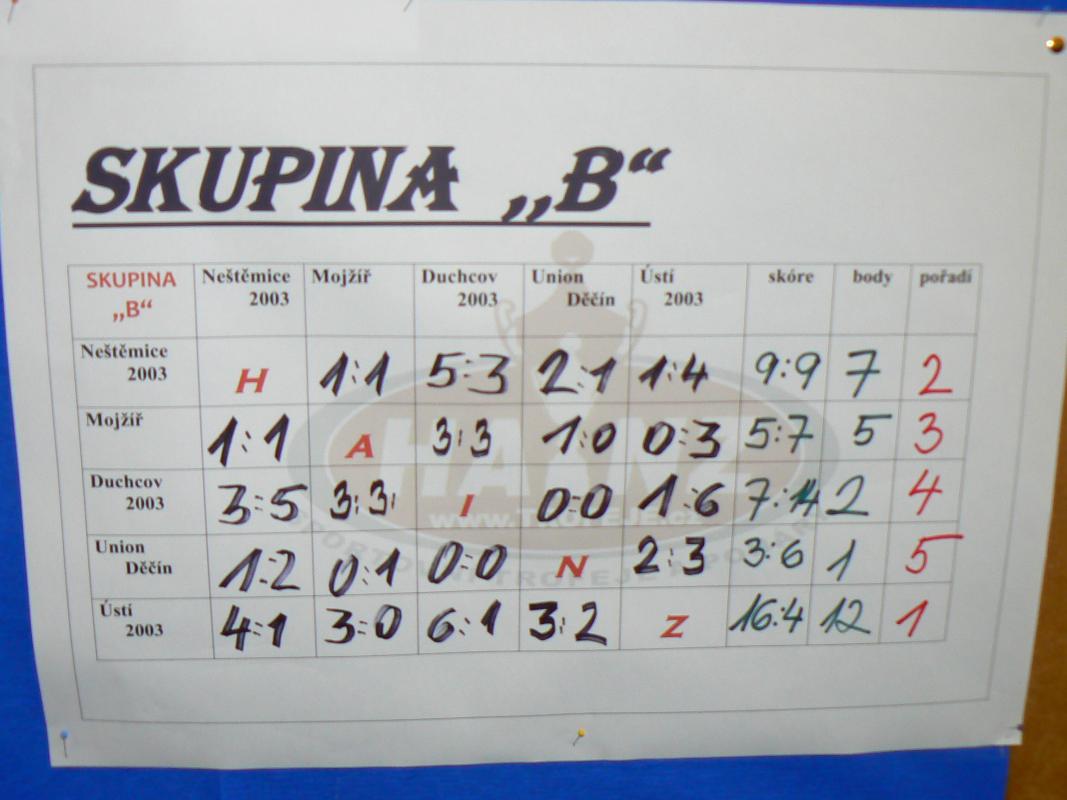 SKUPINA „B“
SKUPINA „B“ Neštěmice 2003 Mojžíř Duchcov 2003 Union Děčín Ústí 2003 skóre body pořadí
Neštěmice 2003 H 1:1 5:3 2:1 1:4 9:9 7 2
Mojžíř 1:1 A 3:3 1:0 0:3 5:7 5 3
Duchcov 2003 3:5 3:3 I 0:0 1:6 7:14 2 4
Union Děčín 1:2 0:1 0:0 N 2:3 3:6 1 5
Ústí 2003 4:1 3:0 6:1 3:2 Z 16:4 12 1
HAINZ
www.TROFEJE.cz